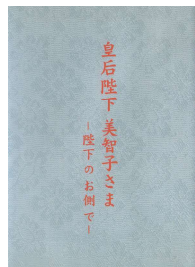 皇后陛下 美智子さま
－陛下のお側で－